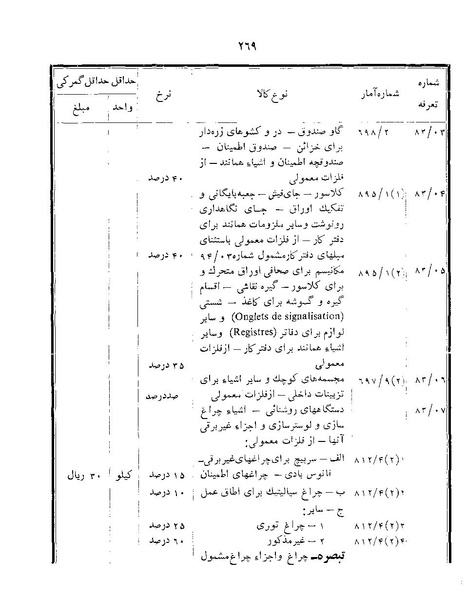 ۲۶۹
شماره تعرفه | شماره آمار | نوع کالا | نرخ | حداقل حداقل گمرکی
واحد | مبلغ
۸۳/۰۳ | ۶۹۸/۲ | گاو صندوق – در و کشوهای زره‌دار
برای خزائن – صندوق اطمینان –
صندوقچه اطمینان و اشیاء همانند – از
فلزات معمولی | ۴۰ درصد
۸۳/۰۴ | ۸۹۵/۱(۱) | کلاسور – جای‌فیش – جعبه‌بایگانی و
تفکیک اوراق – جای نگاهداری
رونوشت وسایر ملزومات همانند برای
دفتر کار – از فلزات معمولی باستثنای
مبلهای دفتر کار مشمول شماره ۹۴/۰۳ | ۴۰ درصد
۸۳/۰۵ | ۸۹۵/۱(۲) | مکانیسم برای صحافی اوراق متحرک و
برای کلاسور – گیره نقاشی – اقسام
گیره و گوشه برای کاغذ – شستی
(Onglets de signalisation) و سایر
لوازم برای دفاتر (Registres) وسایر
اشیاء همانند برای دفتر کار – از فلزات
معمولی | ۳۵ درصد
۸۳/۰۶ | ۶۹۷/۹(۲) | مجسمه‌های کوچک و سایر اشیاء برای
تزیینات داخلی – از فلزات معمولی | صددرصد
۸۳/۰۷ | دستگاههای روشنائی – اشیاء چراغ
سازی و لوسترسازی و اجزاء غیربرقی
آنها – از فلزات معمولی:
۸۱۲/۴(۲)۱ | الف – سرپیچ برای چراغهای غیربرقی –
فانوس بادی – چراغهای اطمینان | ۱۵ درصد | کیلو | ۳۰ ریال
۸۱۲/۴(۲)۲ | ب – چراغ سیالیتیک برای اطاق عمل | ۱۰ درصد
ج – سایر:
۸۱۲/۴(۲)۳ | ۱ – چراغ توری | ۲۵ درصد
۸۱۲/۴(۲)۴ | ۲ – غیرمذکور | ۶۰ درصد
تبصره – چراغ واجزاء چراغ مشمول